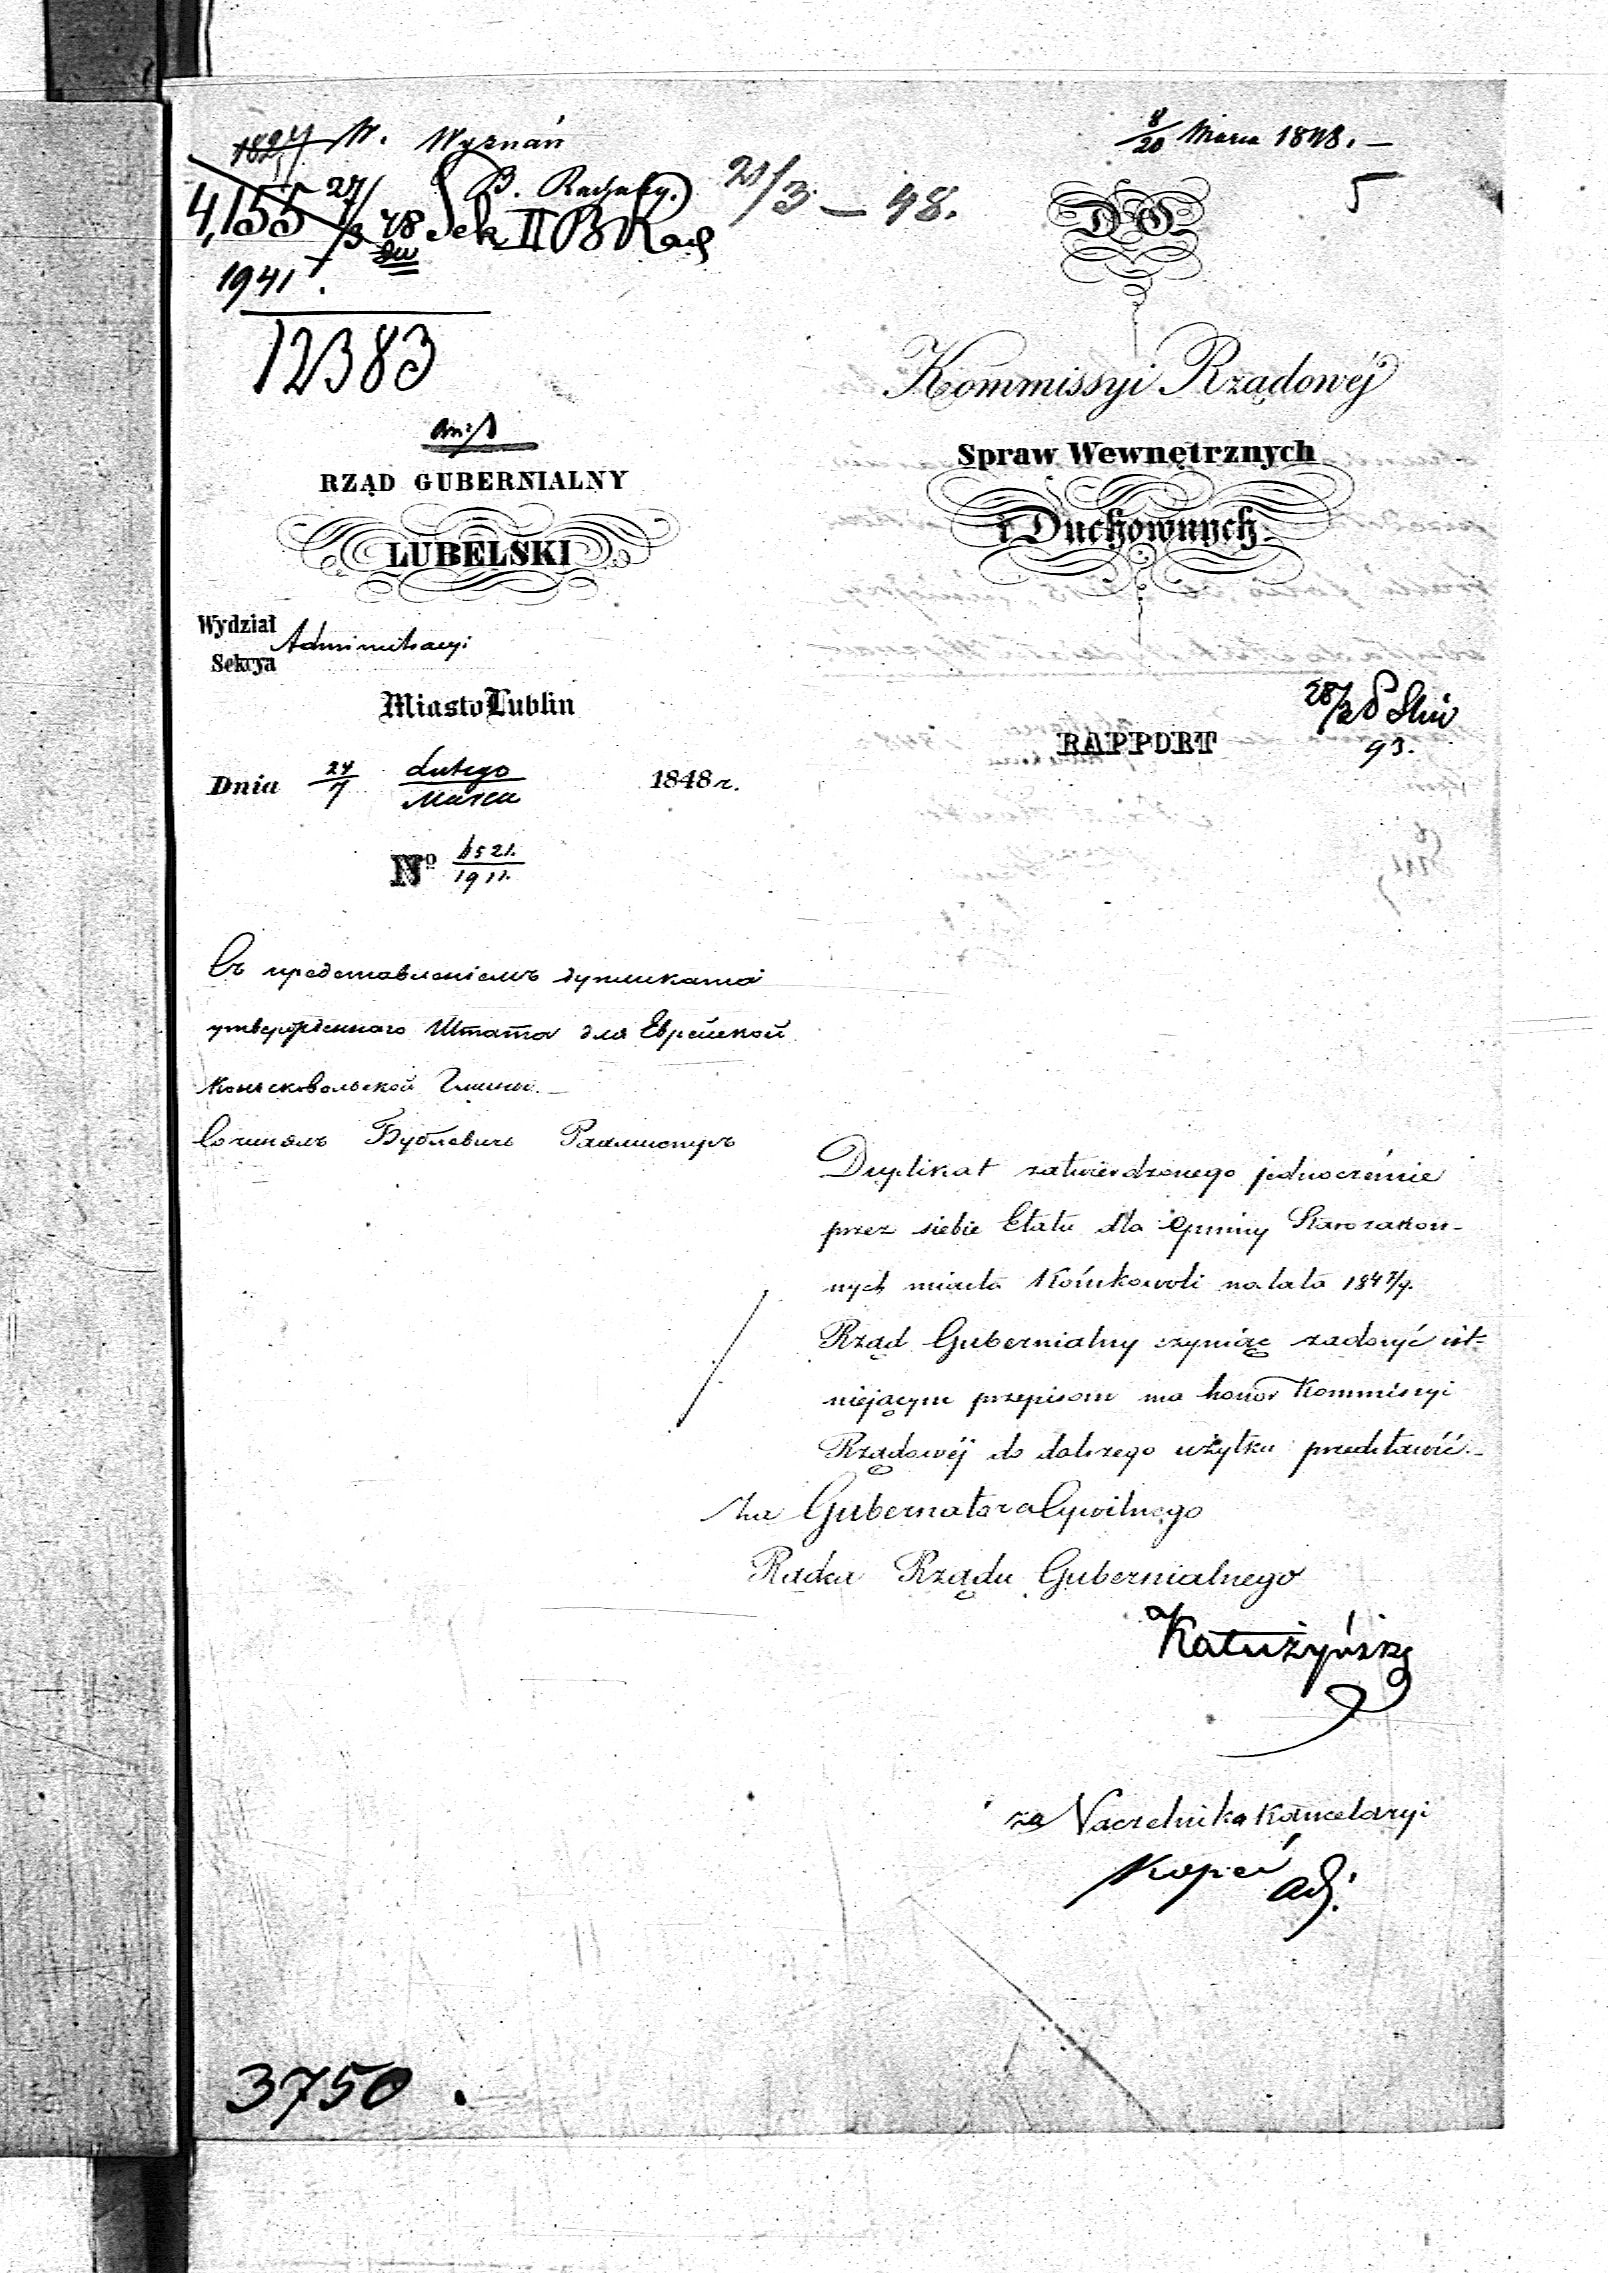 8/20 Marca 1848. —
5
W. Wyznań
4,155 27/3 48 Sek II B Rach
21/3 — 48.
1941.
12383
RZĄD GUBERNIALNY
LUBELSKI
Wydział Administracyi
Sekcya
Miasto Lublin
Dnia 24/7 Lutego/Marca 1848 r.
No 6521./1911.
Do
Kommissyi Rządowéj
Spraw Wewnętrznych
i Duchownych.
RAPPORT
28/3
93.
Съ представленіемъ дупликата
утвержденнаго Штата для Еврейской
Коньсковольской Гмины. —
Сочинялъ Бублевичъ
Duplikat zatwierdzonego jednocześnie
przez siebie Etatu dla Gminy Starozakon-
nych miasta Końskowoli na lata 184 7/9.
Rząd Gubernialny czyniąc zadosyć ist-
niejącym przepisom ma honor Kommissyi
Rządowéj do dalszego użytku przedstawić. —
Za Gubernatora Cywilnego
Radca Rządu Gubernialnego
Kałużyński
za Naczelnika Kancelaryi
Kopeć Adj.
3750.